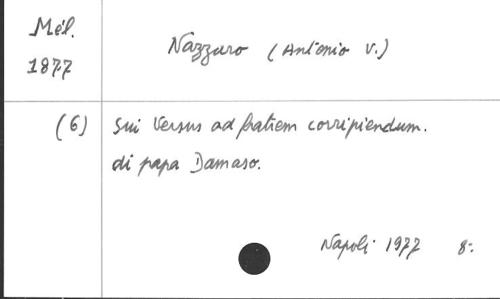 Mél. 1877
Nazzaro (Antonio V.)
(6) Sui Versus ad fratrem corripiendum.
di papa Damaso.
Napoli 1977 8: